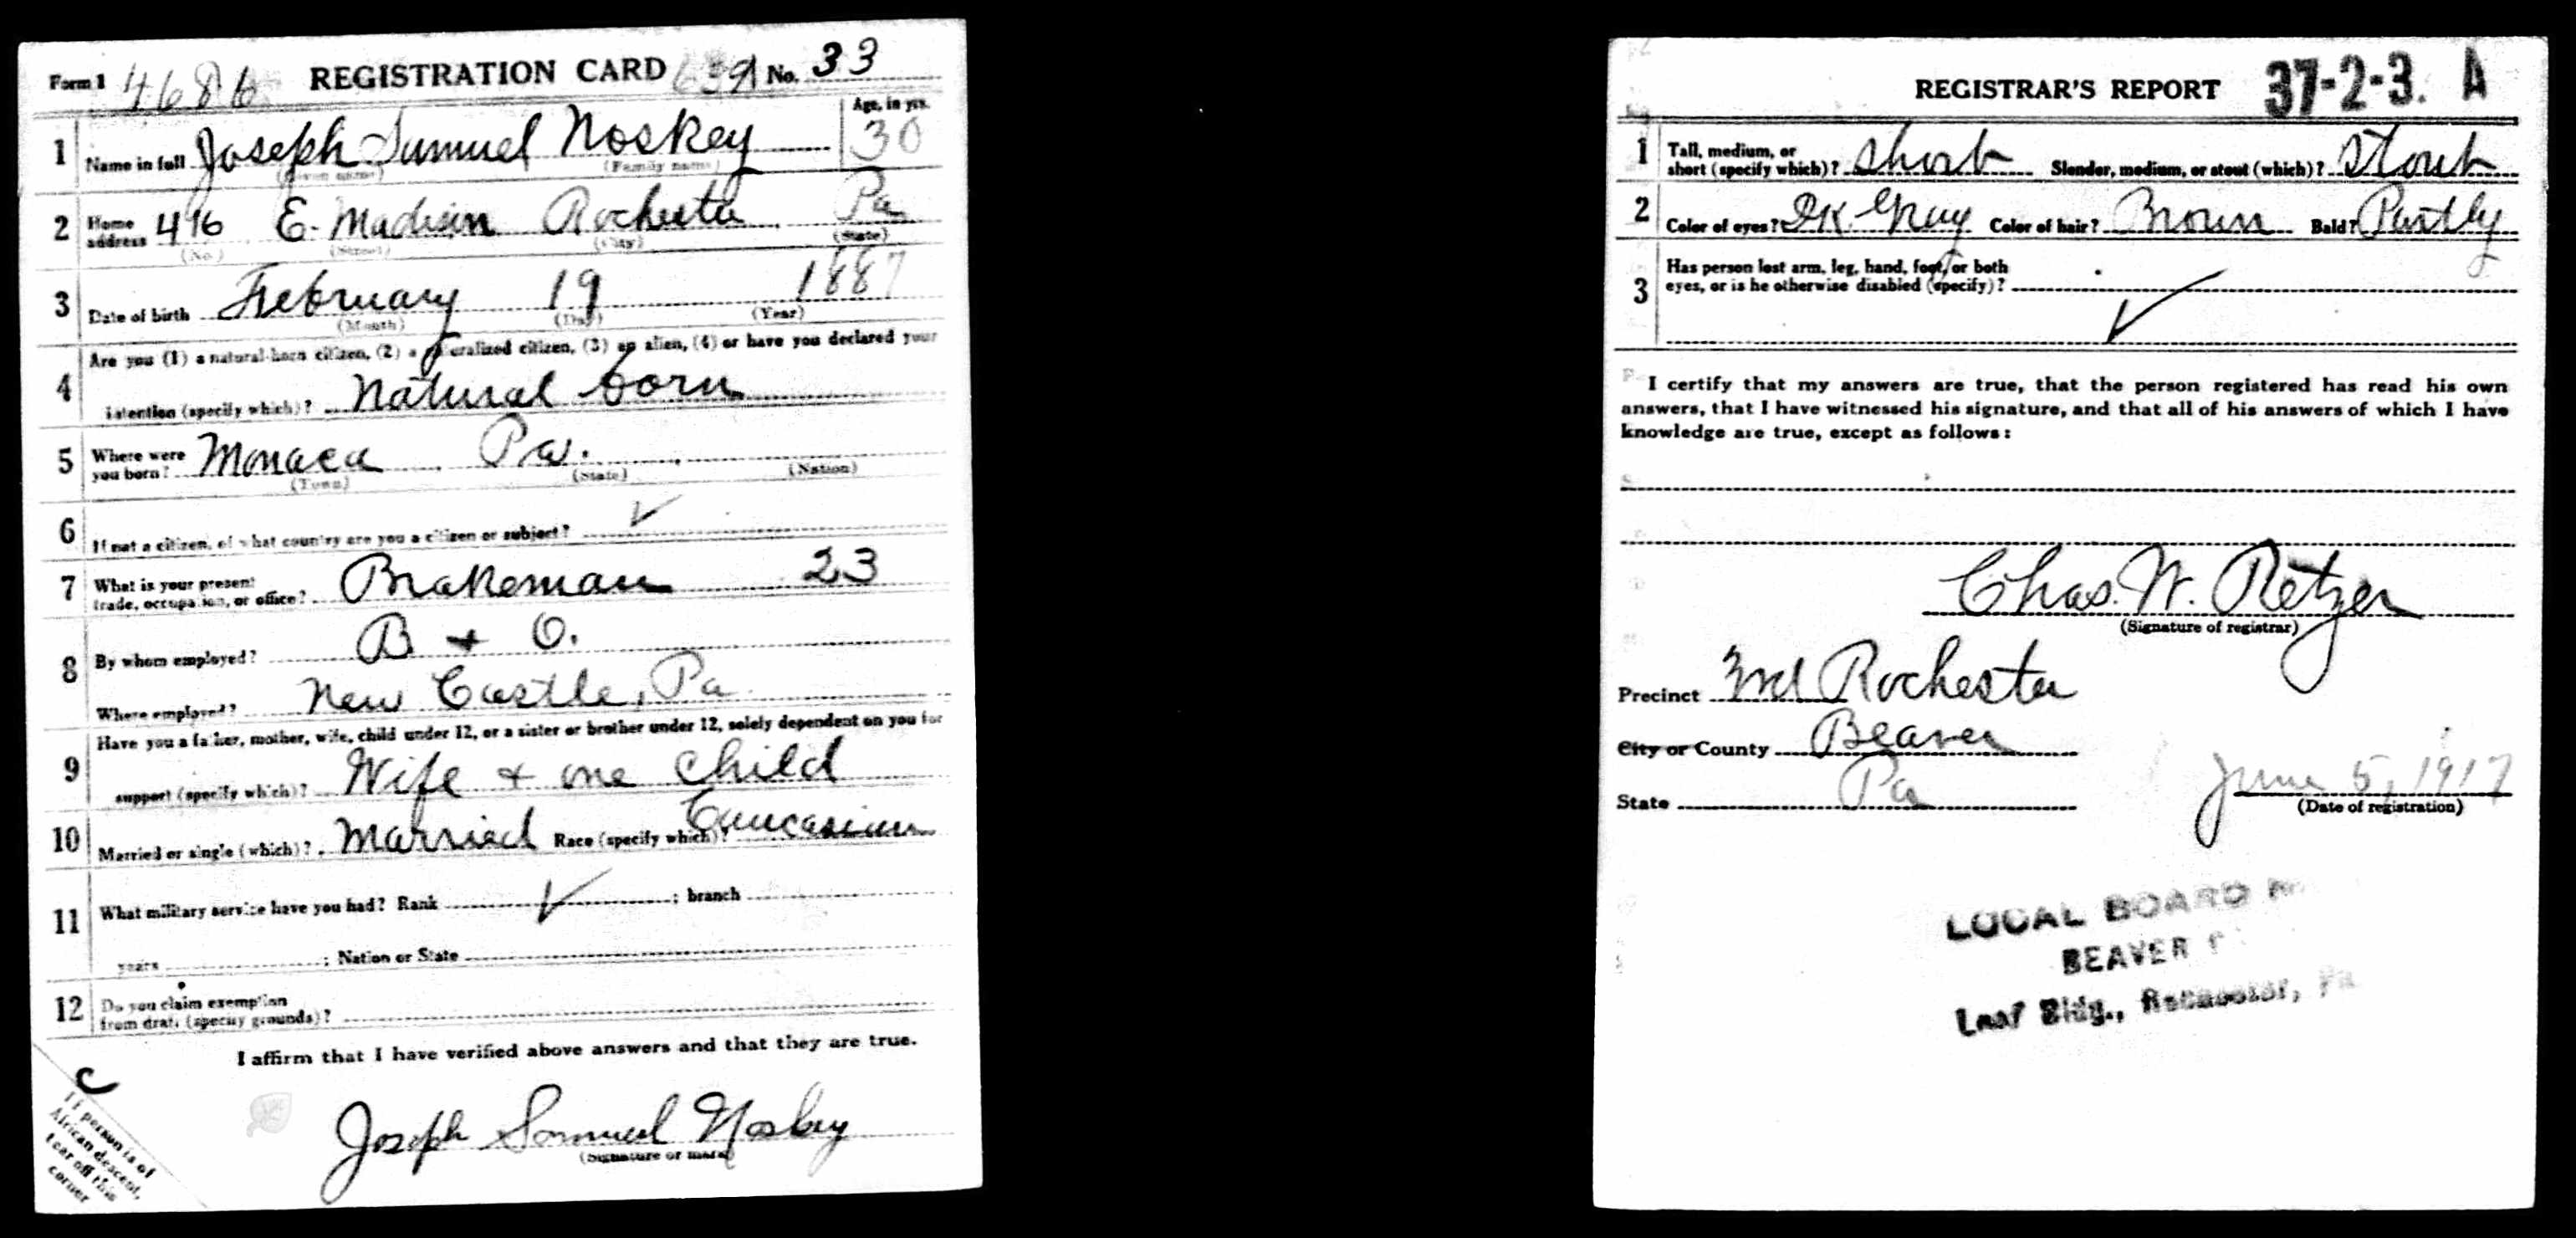 Form 1 4686 REGISTRATION CARD 639 A No. 33
Age, in yrs.
1 Name in full Joseph Samuel Noskey 30
(Given name) (Family name)
2 Home address 416 E. Madison Rochester Pa
(No.) (Street) (City) (State)
3 Date of birth February 19 1887
(Month) (Day) (Year)
4 Are you (1) a natural-born citizen, (2) a naturalized citizen, (3) an alien, (4) or have you declared your
intention (specify which)? Natural born
5 Where were you born? Monaca Pa.
(Town) (State) (Nation)
6 If not a citizen, of what country are you a citizen or subject? ✓
7 What is your present trade, occupation, or office? Brakeman 23
8 By whom employed? B + O.
Where employed? New Castle, Pa
9 Have you a father, mother, wife, child under 12, or a sister or brother under 12, solely dependent on you for
support (specify which)? Wife + one child
10 Married or single (which)? Married Race (specify which)? Caucasian
11 What military service have you had? Rank ✓ ; branch
years ; Nation or State
12 Do you claim exemption
from draft (specify grounds)?
I affirm that I have verified above answers and that they are true.
C
If person is of
African descent,
tear off this
corner
Joseph Samuel Noskey
(Signature or mark)
REGISTRAR'S REPORT 37-2-3. A
1 Tall, medium, or
short (specify which)? Short Slender, medium, or stout (which)? Stout
2 Color of eyes? Dk. Gray Color of hair? Brown Bald? Partly
3 Has person lost arm, leg, hand, foot, or both
eyes, or is he otherwise disabled (specify)?
✓
I certify that my answers are true, that the person registered has read his own
answers, that I have witnessed his signature, and that all of his answers of which I have
knowledge are true, except as follows:
Chas. W. Retzer
(Signature of registrar)
Precinct 3rd Rochester
City or County Beaver
State Pa June 5, 1917
(Date of registration)
LOCAL BOARD
BEAVER
Leaf Bldg., Rochester, Pa.